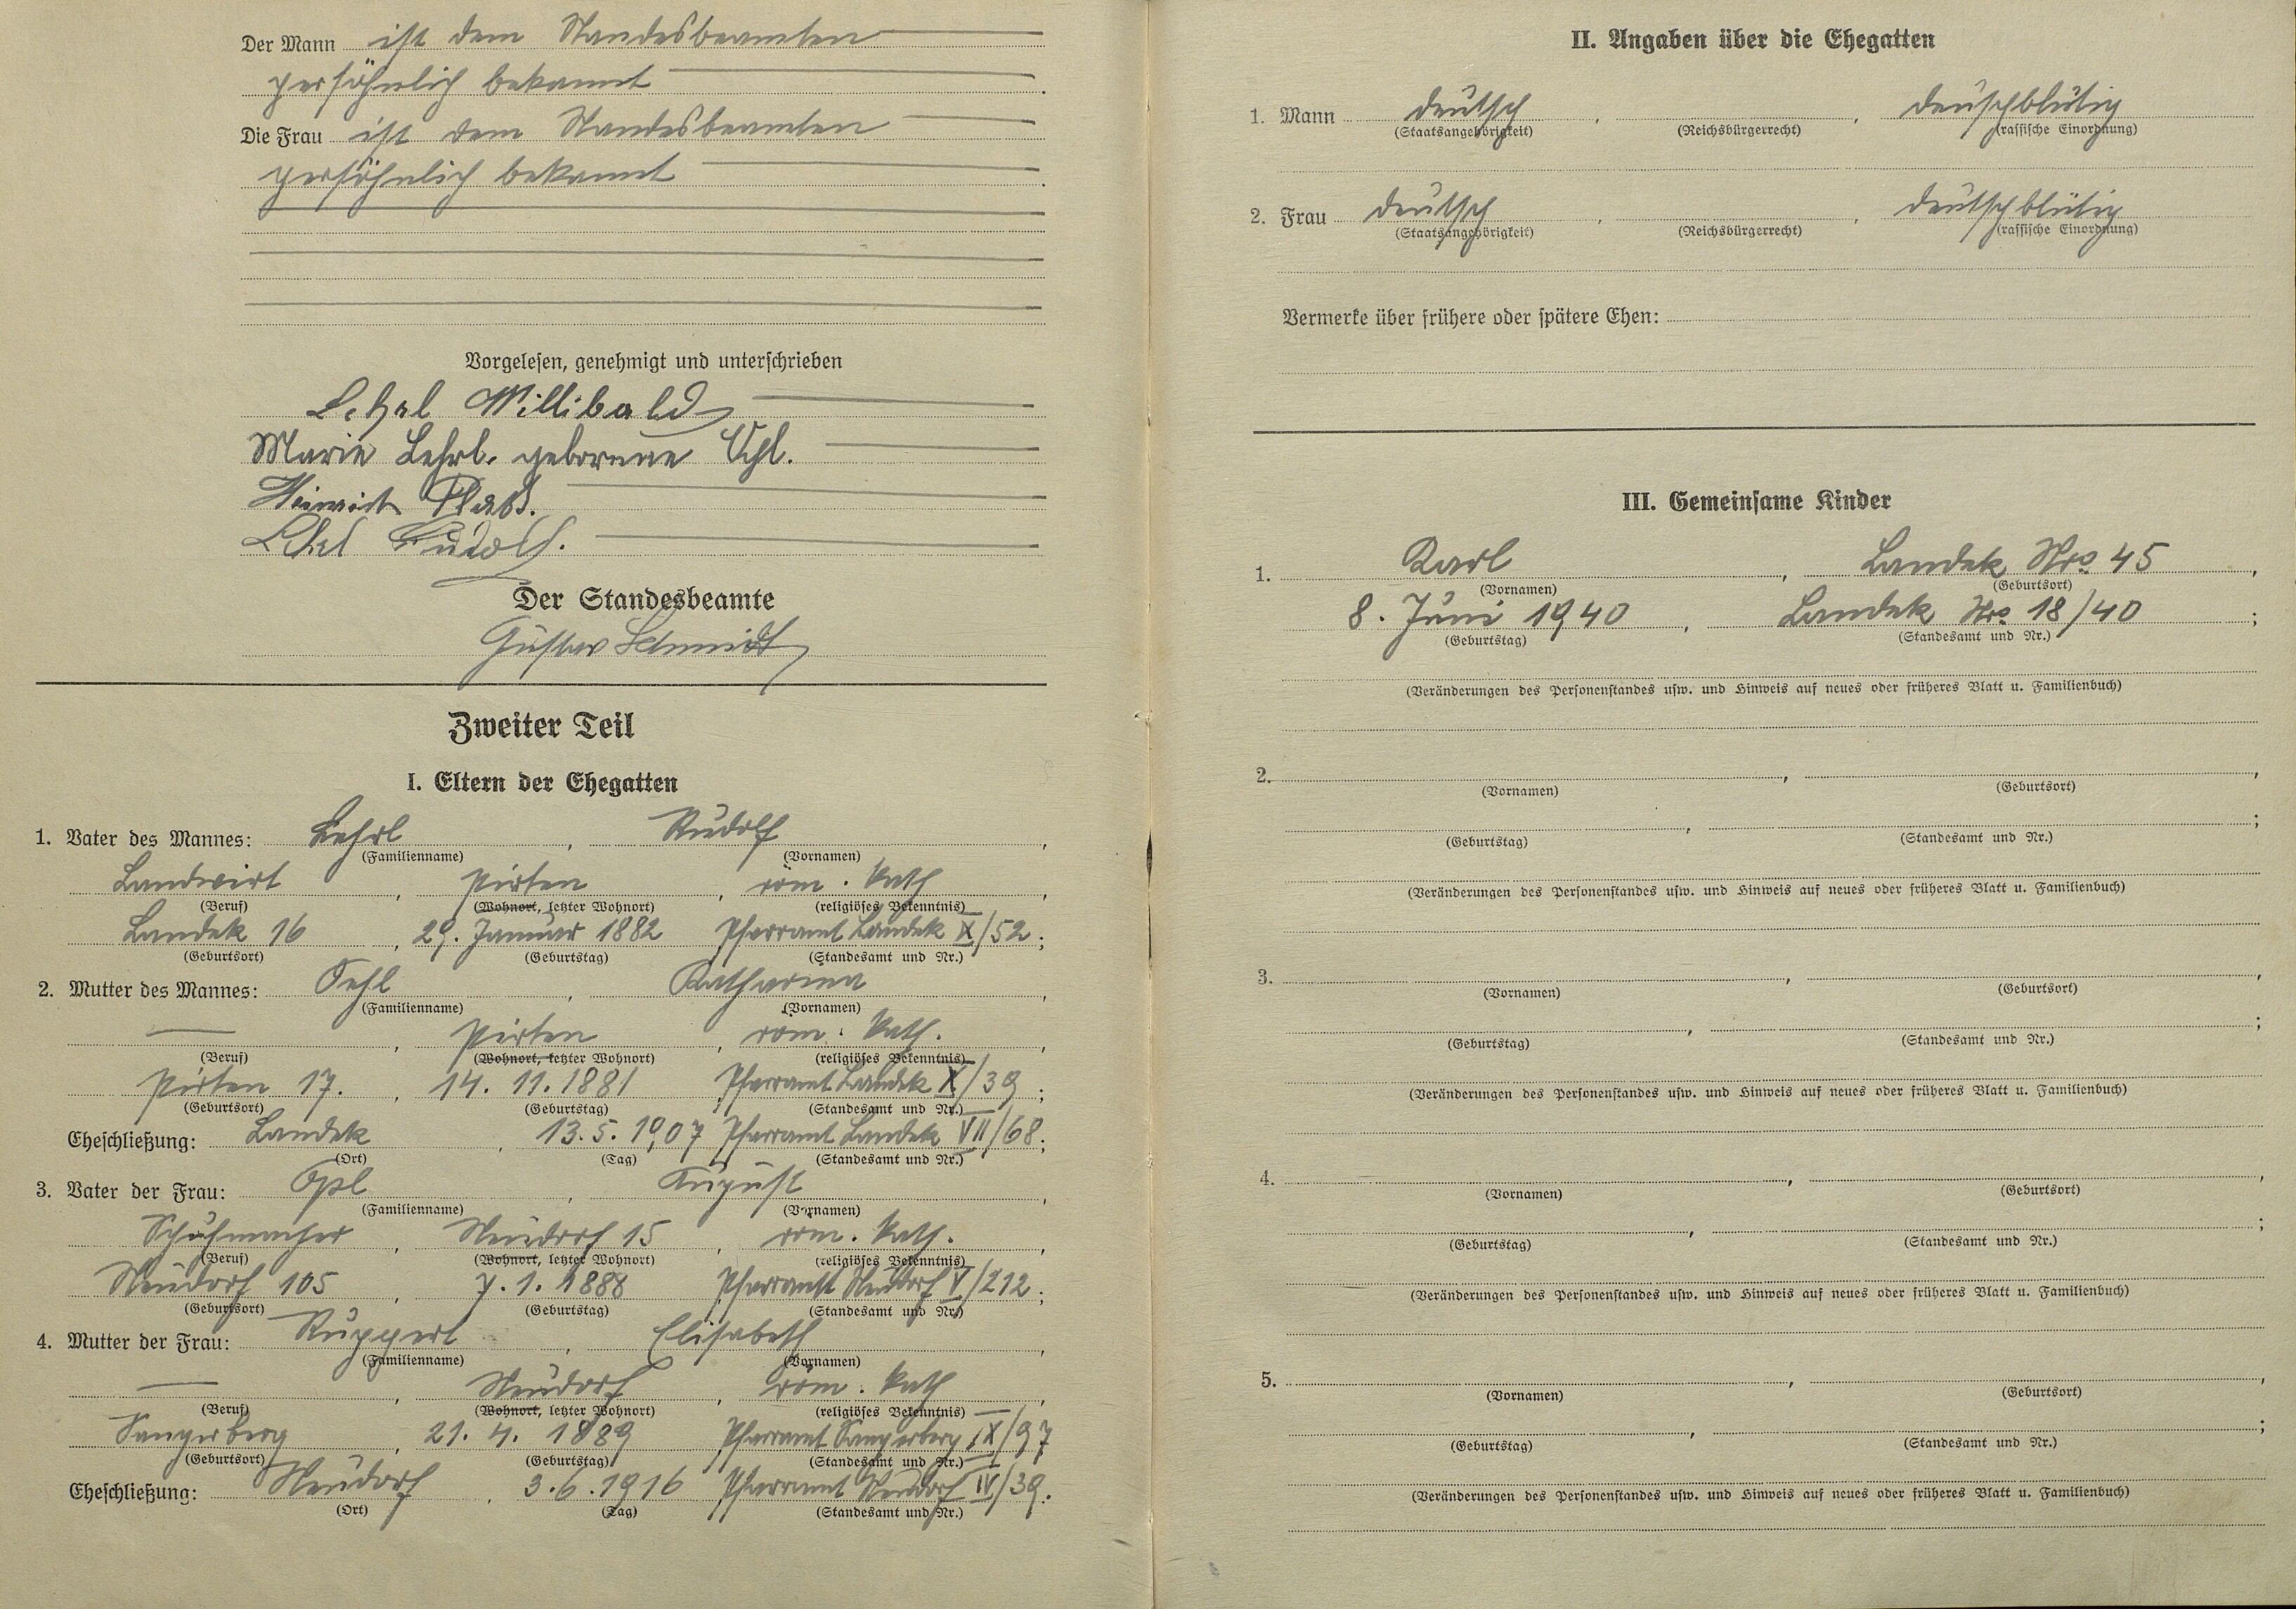 Der Mann ist dem Standesbeamten
persöhnlich bekannt
Die Frau ist dem Standesbeamten
persöhnlich bekannt
Vorgelesen, genehmigt und unterschrieben
Lehrl Willibald
Marie Lehrl. geborene
Heinrich
Rudolf.
Der Standesbeamte
Gustav Schmidt
Zweiter Teil
I. Eltern der Ehegatten
1. Vater des Mannes: Lehrl, Rudolf,
(Familienname) (Vornamen)
Landwirt, Pirten, röm. kath,
(Beruf) (Wohnort, letzter Wohnort) (religiöses Bekenntnis)
Landek 16, 29. Januar 1882 Pfarramt Landek IX/52;
(Geburtsort) (Geburtstag) (Standesamt und Nr.)
2. Mutter des Mannes: Oehl, Katharina,
(Familienname) (Vornamen)
—, Pirten, röm. kath.,
(Beruf) (Wohnort, letzter Wohnort) (religiöses Bekenntnis)
Pirten 17., 14. 11. 1881 Pfarramt Landek X/39;
(Geburtsort) (Geburtstag) (Standesamt und Nr.)
Eheschließung: Landek, 13. 5. 1907 Pfarramt Landek VII/68;
(Ort) (Tag) (Standesamt und Nr.)
3. Vater der Frau: Opl, August,
(Familienname) (Vornamen)
Schuhmacher, Neudorf 15, röm. kath.,
(Beruf) (Wohnort, letzter Wohnort) (religiöses Bekenntnis)
Neudorf 105, 7. 1. 1888 Pfarramt Neudorf V/212;
(Geburtsort) (Geburtstag) (Standesamt und Nr.)
4. Mutter der Frau: Ruppert, Elisabeth,
(Familienname) (Vornamen)
—, Neudorf, röm. kath,
(Beruf) (Wohnort, letzter Wohnort) (religiöses Bekenntnis)
Sangerberg, 21. 4. 1889 Pfarramt Sangerberg IX/97
(Geburtsort) (Geburtstag) (Standesamt und Nr.)
Eheschließung: Neudorf, 3. 6. 1916 Pfarramt Neudorf IV/39.
(Ort) (Tag) (Standesamt und Nr.)
II. Angaben über die Ehegatten
1. Mann deutsch, , deuschblütig
(Staatsangehörigkeit) (Reichsbürgerrecht) (rassische Einordnung)
2. Frau deutsch, , deutschblütig
(Staatsangehörigkeit) (Reichsbürgerrecht) (rassische Einordnung)
Vermerke über frühere oder spätere Ehen:
III. Gemeinsame Kinder
1. Karl, Landek Nro 45,
(Vornamen) (Geburtsort)
8. Juni 1940, Landek Nro 18/40;
(Geburtstag) (Standesamt und Nr.)
(Veränderungen des Personenstandes usw. und Hinweis auf neues oder früheres Blatt u. Familienbuch)
2. , ,
(Vornamen) (Geburtsort)
, ;
(Geburtstag) (Standesamt und Nr.)
(Veränderungen des Personenstandes usw. und Hinweis auf neues oder früheres Blatt u. Familienbuch)
3. , ,
(Vornamen) (Geburtsort)
, ;
(Geburtstag) (Standesamt und Nr.)
(Veränderungen des Personenstandes usw. und Hinweis auf neues oder früheres Blatt u. Familienbuch)
4. , ,
(Vornamen) (Geburtsort)
, ;
(Geburtstag) (Standesamt und Nr.)
(Veränderungen des Personenstandes usw. und Hinweis auf neues oder früheres Blatt u. Familienbuch)
5. , ,
(Vornamen) (Geburtsort)
, ;
(Geburtstag) (Standesamt und Nr.)
(Veränderungen des Personenstandes usw. und Hinweis auf neues oder früheres Blatt u. Familienbuch)